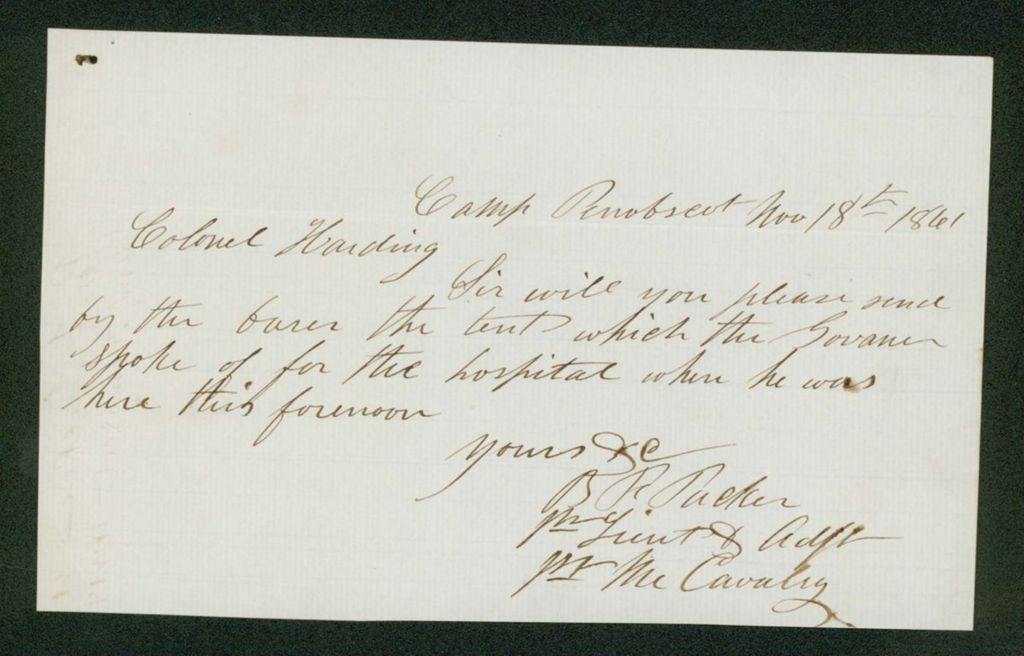 Camp Penobscot Nov 18th 1861
Colonel Harding
Sir will you please send
by the barer the tent which the Govaner
spoke of for the hospital when he was
here this forenoon
yours &c
B F Tucker
1st Lieut & Adjt
1st Me Cavalry